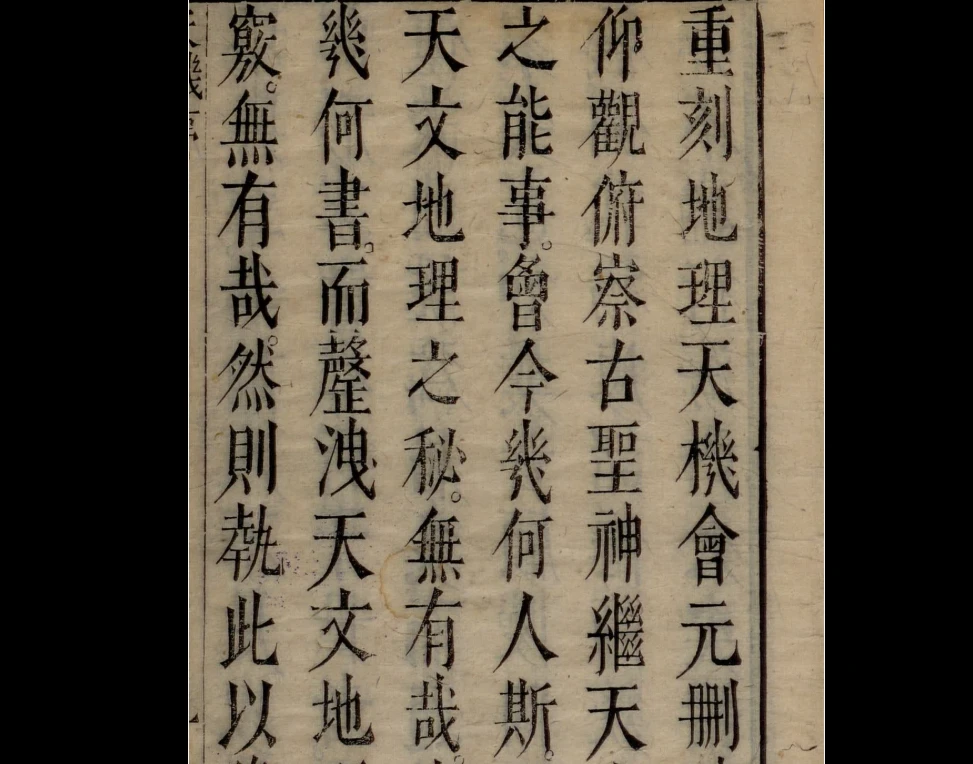 重刻地理天機會元刪
仰觀俯察古聖神繼天
之能事。會今幾何人斯。
天文地理之秘。無有哉。
幾何書。而罄洩天文地
竅。無有哉。然則執此以
天機